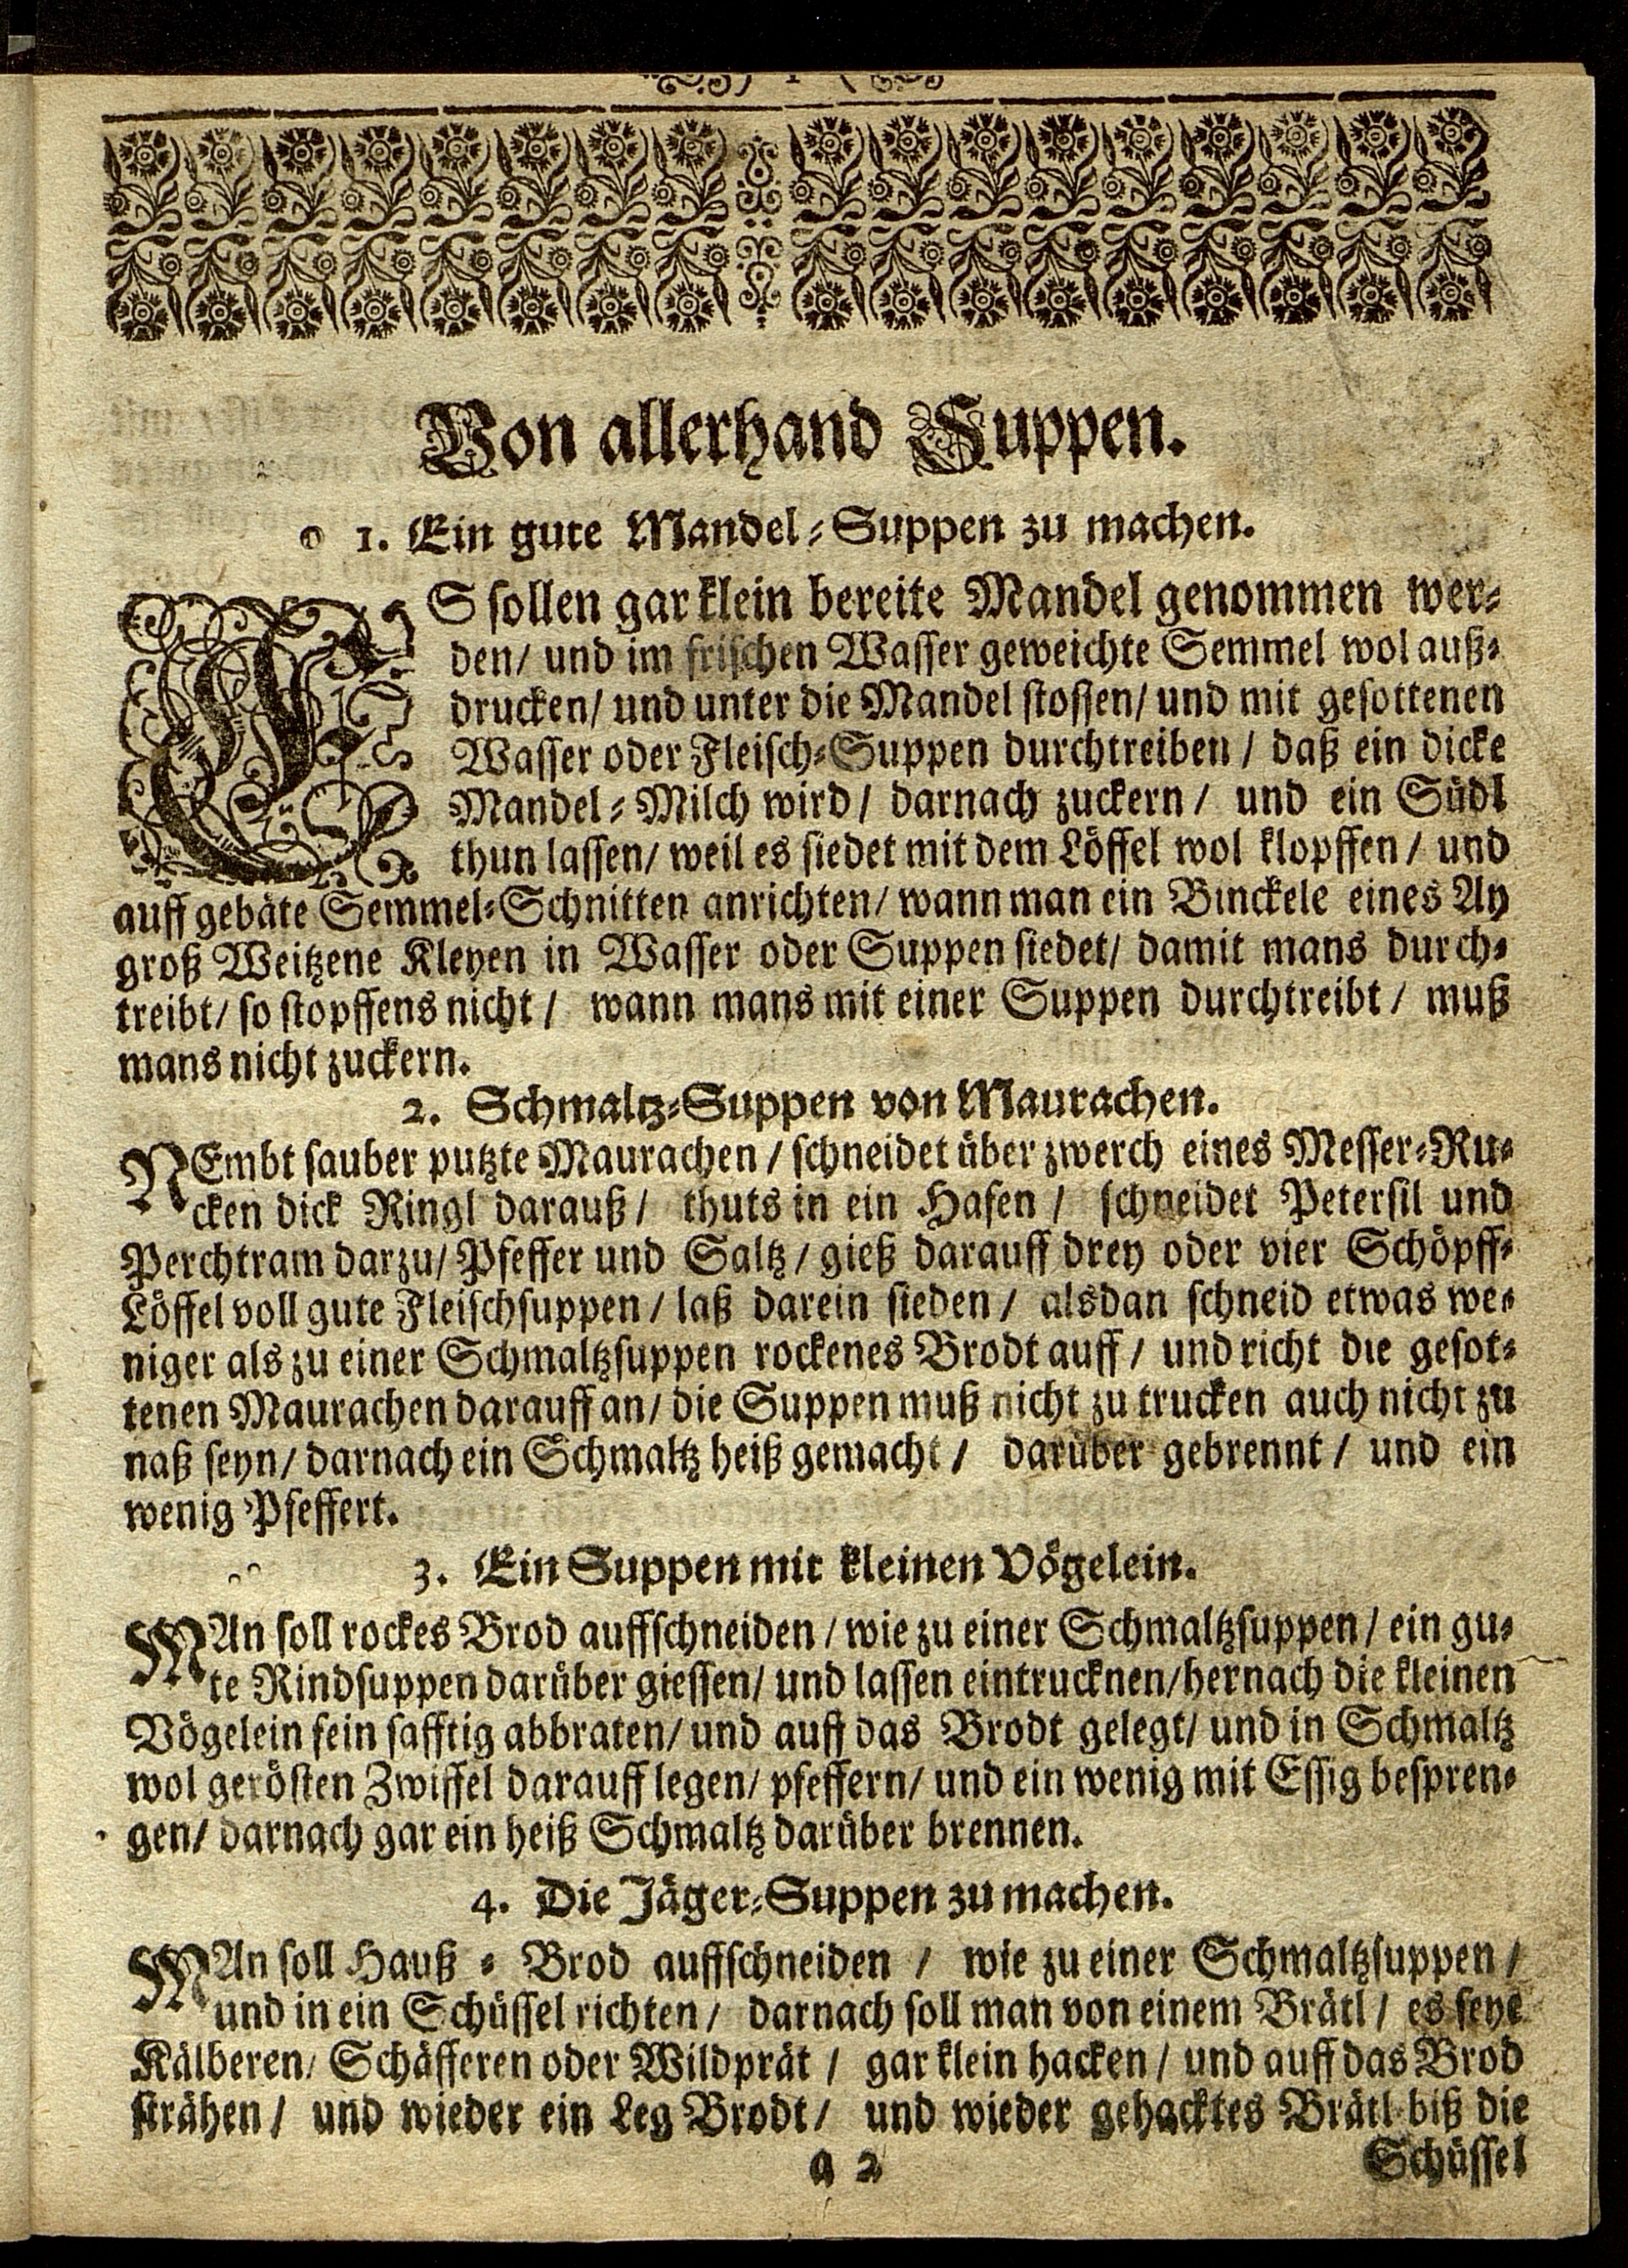 Von allerhand Suppen.
1. Ein gute Mandel-Suppen zu machen.
ES sollen gar klein bereite Mandel genommen wer-
den/ und im frischen Wasser geweichte Semmel wol auß-
drucken/ und unter die Mandel stossen/ und mit gesottenen
Wasser oder Fleisch-Suppen durchtreiben / daß ein dicke
Mandel-Milch wird / darnach zuckern / und ein Südl
thun lassen/ weil es siedet mit dem Löffel wol klopffen / und
auff gebäte Semmel-Schnitten anrichten/ wann man ein Binckele eines Ay
groß Weitzene Kleyen in Wasser oder Suppen siedet/ damit mans durch-
treibt/ so stopffens nicht / wann mans mit einer Suppen durchtreibt / muß
mans nicht zuckern.
2. Schmaltz-Suppen von Maurachen.
NEmbt sauber putzte Maurachen / schneidet über zwerch eines Messer-Ru-
cken dick Ringl darauß / thuts in ein Hafen / schneidet Petersil und
Perchtram darzu/ Pfeffer und Saltz / gieß darauff drey oder vier Schöpff-
Löffel voll gute Fleischsuppen / laß darein sieden / alsdan schneid etwas we-
niger als zu einer Schmaltzsuppen rockenes Brodt auff / und richt die gesot-
tenen Maurachen darauff an / die Suppen muß nicht zu trucken auch nicht zu
naß seyn / darnach ein Schmaltz heiß gemacht / darüber gebrennt / und ein
wenig Pfeffert.
3. Ein Suppen mit kleinen Vögelein.
MAn soll rockes Brod auffschneiden / wie zu einer Schmaltzsuppen / ein gu-
te Rindsuppen darüber giessen/ und lassen eintrucknen/hernach die kleinen
Vögelein fein safftig abbraten/ und auff das Brodt gelegt/ und in Schmaltz
wol gerösten Zwiffel darauff legen/ pfeffern/ und ein wenig mit Essig bespren-
gen/ darnach gar ein heiß Schmaltz darüber brennen.
4. Die Jäger-Suppen zu machen.
MAn soll Hauß-Brod auffschneiden / wie zu einer Schmaltzsuppen /
und in ein Schüssel richten / darnach soll man von einem Brätl / es seye
Kälberen/ Schäfferen oder Wildprät / gar klein hacken / und auff das Brod
strähen / und wieder ein Leg Brodt / und wieder gehacktes Brätl biß die
a 2
Schüssel